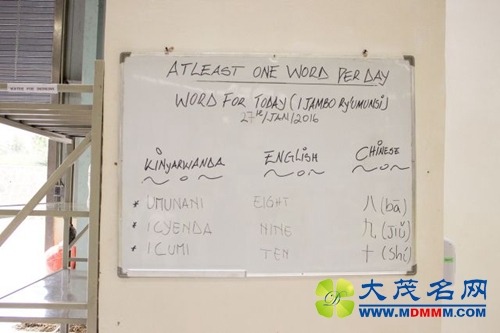 ATLEAST ONE WORD PER DAY
WORD FOR TODAY (IJAMBO RY'UMUNSI)
27TH/JAN/2016
KINYARWANDA ENGLISH CHINESE
* UMUNANI EIGHT 八 (bā)
* ICYENDA NINE 九 (jiǔ)
* ICUMI TEN 十 (shí)
大茂名网
WWW.MDMMM.COM